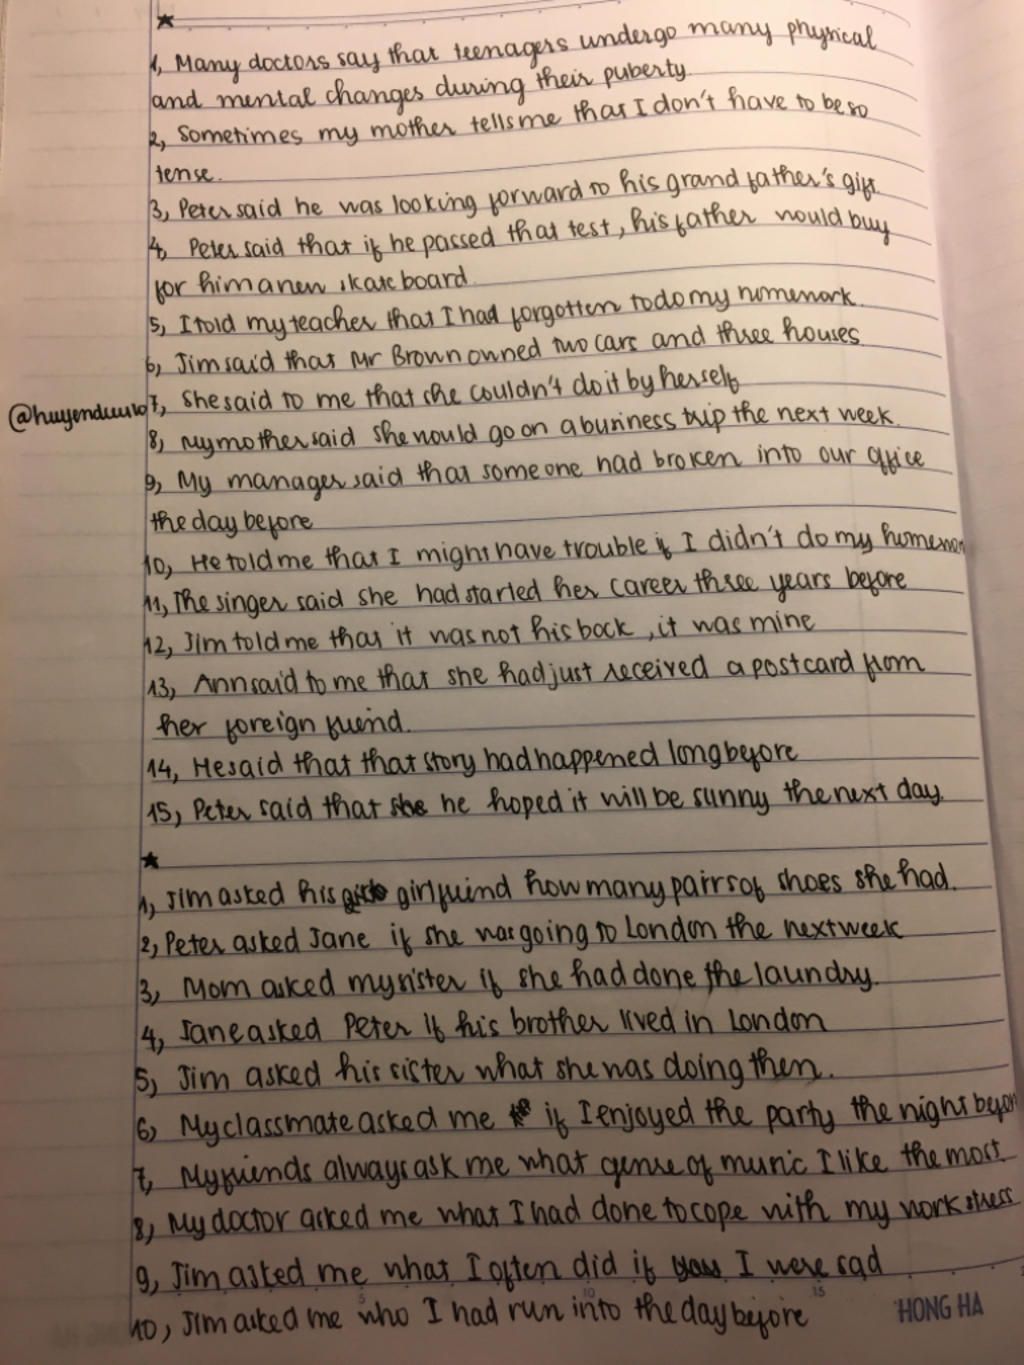 ★
1, Many doctors say that teenagers undergo many physical
and mental changes during their puberty.
2, Sometimes my mother tells me that I don't have to be so
tense.
3, Peter said he was looking forward to his grandfather's gift
4, Peter said that if he passed that test, his father would buy
for him a new skateboard.
5, I told my teacher that I had forgotten to do my homework.
6, Jim said that Mr Brown owned two cars and three houses
@huyenduuu10 7, She said to me that she couldn't do it by herself
8, My mother said she would go on a business trip the next week.
9, My manager said that someone had broken into our office
the day before
10, He told me that I might have trouble if I didn't do my homewor
11, The singer said she had started her career three years before
12, Jim told me that it was not his bock, it was mine
13, Ann said to me that she had just received a postcard from
her foreign friend.
14, He said that that story had happened long before
15, Peter said that she he hoped it will be sunny the next day.
★
1, Jim asked his girlfriend how many pairs of shoes she had.
2, Peter asked Jane if she was going to London the next week
3, Mom asked my sister if she had done the laundry.
4, Jane asked Peter if his brother lived in London
5, Jim asked his sister what she was doing then.
6, My classmate asked me if I enjoyed the party the night befor
7, My friends always ask me what genre of music I like the most
8, My doctor asked me what I had done to cope with my work stress
9, Jim asked me what I often did if you I were sad
10, Jim asked me who I had run into the day before
5 10 15
HONG HA